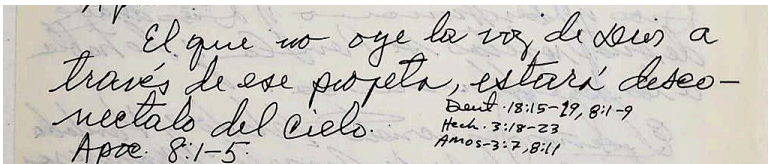 El que no oye la voz de Dios a
través de ese profeta, estará desco-
nectalo del cielo.
Deut. 18:15-19, 8:1-9
Hech. 3:18-23
Amos-3:7, 8:11
Apoc. 8:1-5